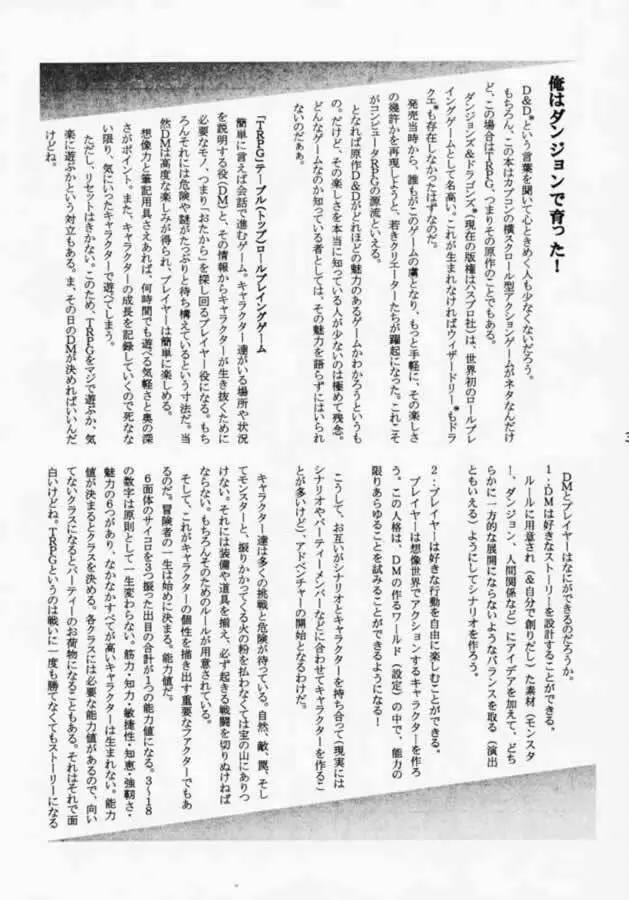 俺はダンジョンで育った！
D&D*という言葉を聞いて心ときめく人も少なくないだろう。
もちろん、この本はカプコンの横スクロール型アクションゲームがネタなんだけ
ど、この場合はTRPG、つまりその原作のことでもある。
ダンジョンズ&ドラゴンズ*（現在の版権はハスブロ社）は、世界初のロールプレ
イングゲームとして名高い。これが生まれなければウィザードリー*もドラ
クエ*も存在しなかったはずなのだ。
発売当時から、誰もがこのゲームの虜となり、もっと手軽に、その楽しさ
の幾許かを再現しようと、若きクリエーターたちが躍起になった。これこそ
がコンピュータRPGの源流といえる。
となれば原作D&Dがどれほどの魅力のあるゲームかわかろうというも
の。だけど、その楽しさを本当に知っている人が少ないのは極めて残念。
どんなゲームなのか知っている者としては、その魅力を語らずにはいられ
ないのだぁぁ。
「TRPG」テーブル（トップ）ロールプレイングゲーム
簡単に言えば会話で進むゲーム。キャラクター達がいる場所や状況
を説明する役（DM）と、その情報からキャラクターが生き抜くために
必要なモノ、つまり「おたから」を探し回るプレイヤー役になる。もち
ろんそれには危険や謎がたっぷりと待ち構えているという寸法だ。当
然DMは高度な楽しみが得られ、プレイヤーは簡単に楽しめる。
想像力と筆記用具さえあれば、何時間でも遊べる気軽さと奥の深
さがポイント。また、キャラクターの成長を記録していくので死なな
い限り、気にいったキャラクターで遊べてしまう。
ただし、リセットはきかない。このため、TRPGをマジで遊ぶか、気
楽に遊ぶかという対立もある。ま、その日のDMが決めればいいんだ
けどね。
DMとプレイヤーはなにができるのだろうか。
1：DMは好きなストーリーを設計することができる。
ルールに用意され（&自分で創りだし）た素材（モンスタ
ー、ダンジョン、人間関係など）にアイデアを加えて、どち
らかに一方的な展開にならないようなバランスを取る（演出
ともいえる）ようにしてシナリオを作ろう。
2：プレイヤーは好きな行動を自由に楽しむことができる。
プレイヤーは想像世界でアクションするキャラクターを作ろ
う。この人格は、DMの作るワールド（設定）の中で、能力の
限りあらゆることを試みることができるようになる！
こうして、お互いがシナリオとキャラクターを持ち合って（現実には
シナリオやパーティーメンバーなどに合わせてキャラクターを作るこ
とが多いけど）、アドベンチャーの開始となるわけだ。
キャラクター達は多くの挑戦と危険が待っている。自然、敵、罠、そし
てモンスターと、振りかかってくる火の粉を払わなくては宝の山にありつ
けない。それには装備や道具を揃え、必ず起きる戦闘を切りぬけねば
ならない。もちろんそのためのルールが用意されている。
そして、これがキャラクターの個性を描き出す重要なファクターでもあ
るのだ。冒険者の一生は始めに決まる。能力値だ。
6面体のサイコロを3つ振った出目の合計が1つの能力値になる。3～18
の数字は原則として一生変わらない。筋力・知力・敏捷性・知恵・強靭さ・
魅力の6つがあり、なかなかすべてが高いキャラクターは生まれない。能力
値が決まるとクラスを決める。各クラスには必要な能力値があるので、向い
てないクラスになるとパーティーのお荷物になることもある。それはそれで面
白いけどね。TRPGというのは戦いに一度も勝てなくてもストーリーになる